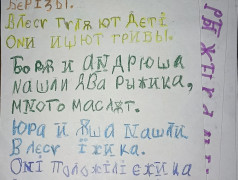 БЕРІЗЫ.
В лесу гуляют дети
Они ищют грибы.
Боря и Андрюша
нашли два рыжика,
много маслят.
Юра и Яша нашли
в лесу ёжика.
Они положили ежика